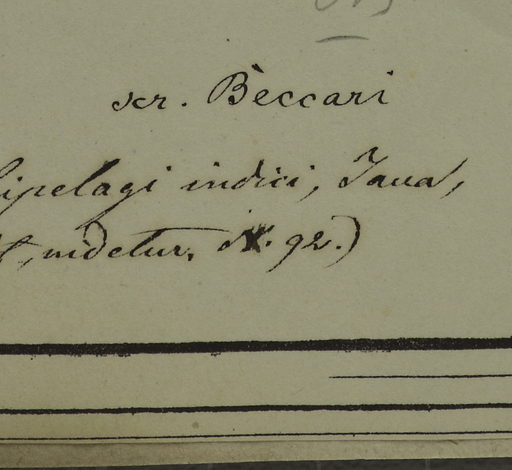 scr. Beccari
ipelagi indici, Java,
, videtur. N. 92.)